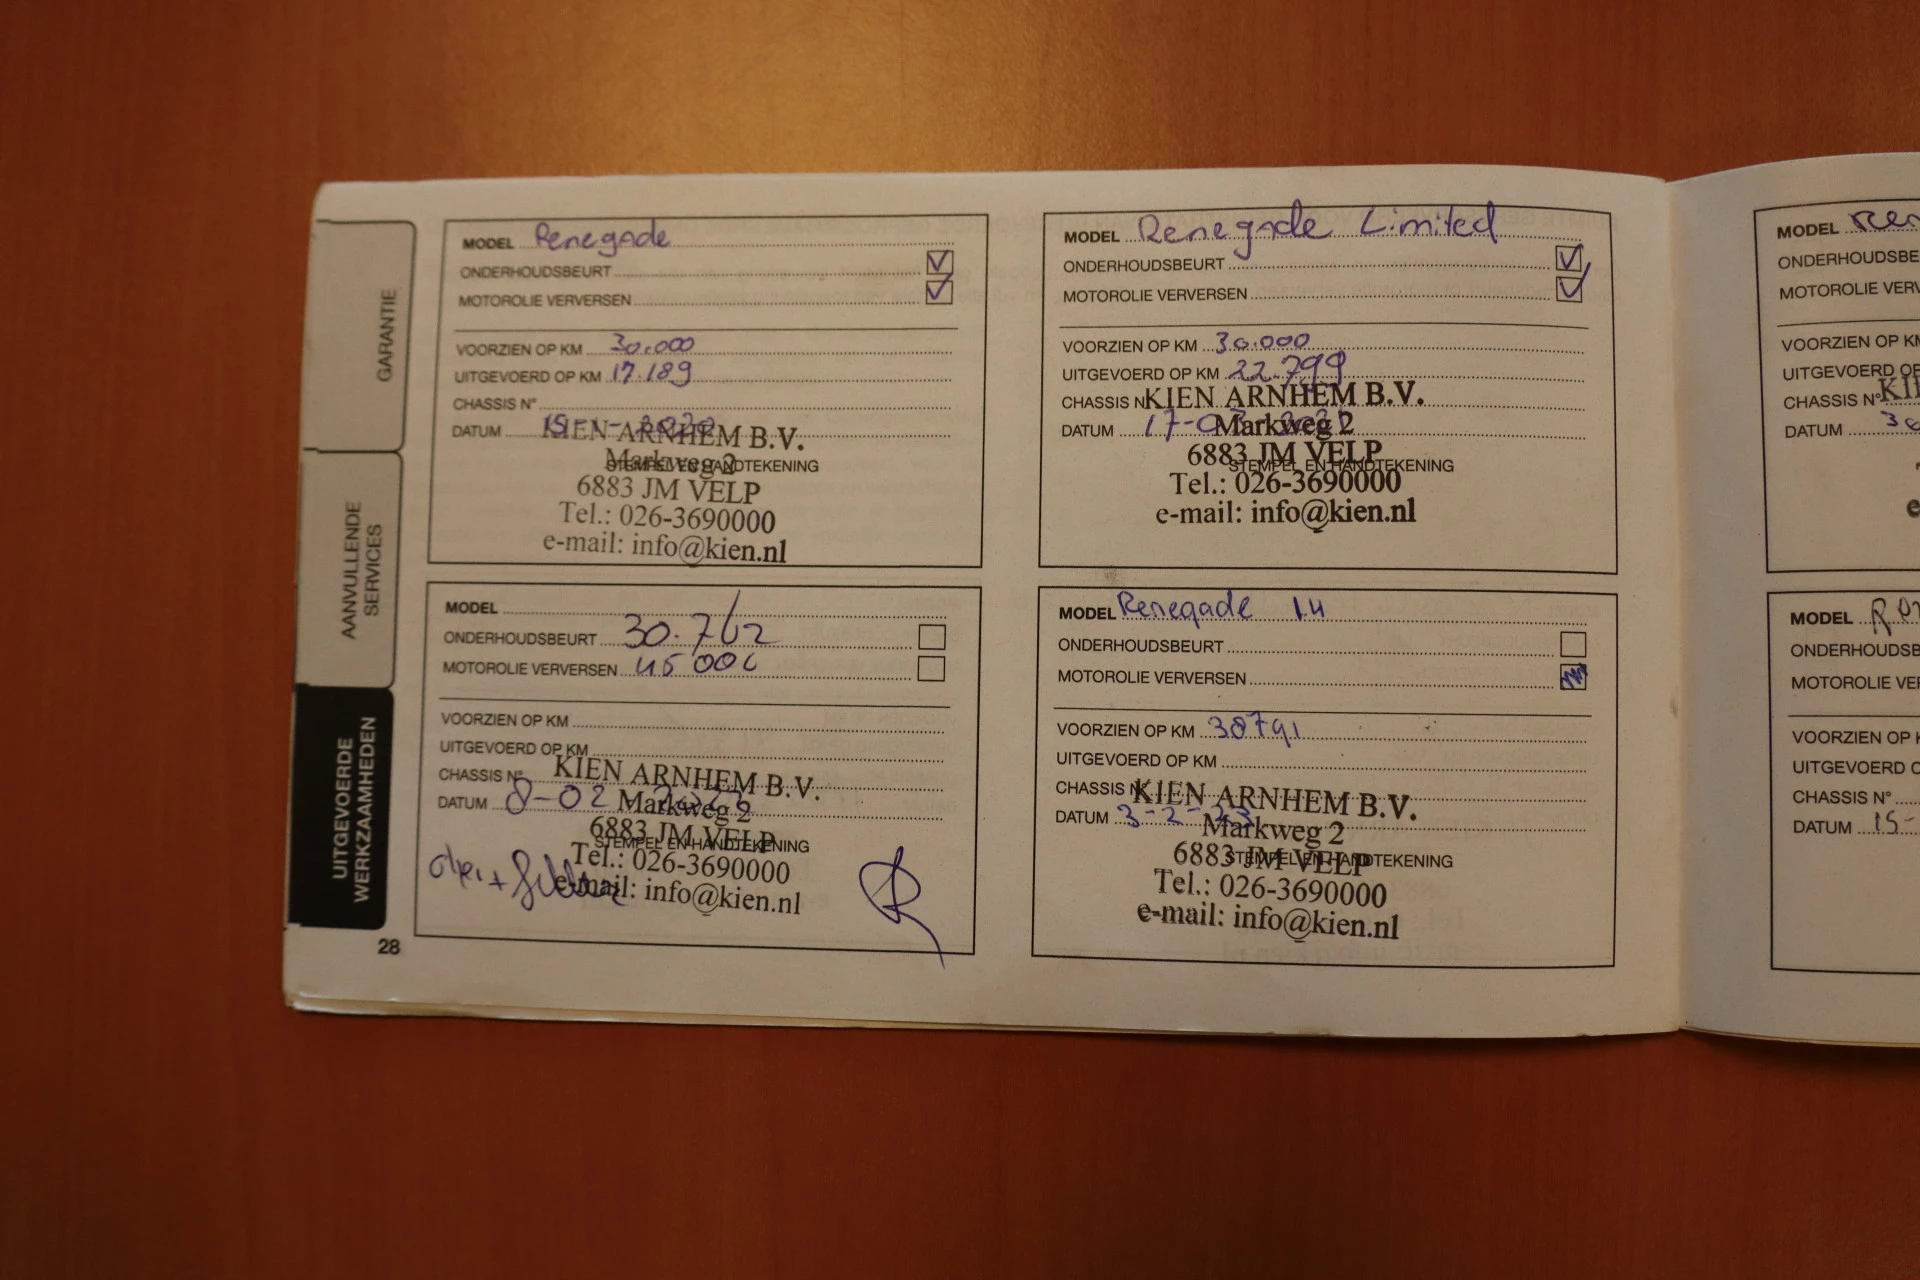 GARANTIE
AANVULLENDE
SERVICES
UITGEVOERDE
WERKZAAMHEDEN
28
MODEL Renegade
ONDERHOUDSBEURT
MOTOROLIE VERVERSEN
VOORZIEN OP KM 30.000
UITGEVOERD OP KM 17.189
CHASSIS N°
DATUM 15-1-2020
KIEN ARNHEM B.V.
Markweg 2
STEMPEL EN HANDTEKENING
6883 JM VELP
Tel.: 026-3690000
e-mail: info@kien.nl
MODEL Renegade Limited
ONDERHOUDSBEURT
MOTOROLIE VERVERSEN
VOORZIEN OP KM 30.000
UITGEVOERD OP KM 22.799
CHASSIS N°
KIEN ARNHEM B.V.
DATUM 17-
Markweg 2
6883 JM VELP
STEMPEL EN HANDTEKENING
Tel.: 026-3690000
e-mail: info@kien.nl
MODEL
ONDERHOUDSBEURT 30.762
MOTOROLIE VERVERSEN 45000
VOORZIEN OP KM
UITGEVOERD OP KM
CHASSIS N°
KIEN ARNHEM B.V.
DATUM 8-02
Markweg 2
6883 JM VELP
STEMPEL EN HANDTEKENING
Tel.: 026-3690000
e-mail: info@kien.nl
MODEL Renegade 1.4
ONDERHOUDSBEURT
MOTOROLIE VERVERSEN
VOORZIEN OP KM 38791
UITGEVOERD OP KM
CHASSIS N°
KIEN ARNHEM B.V.
DATUM 3-2-23
Markweg 2
6883 JM VELP
STEMPEL EN HANDTEKENING
Tel.: 026-3690000
e-mail: info@kien.nl
MODEL Ren
ONDERHOUDSBE
MOTOROLIE VERV
VOORZIEN OP KM
UITGEVOERD OP
CHASSIS N°
KI
DATUM 30
MODEL
ONDERHOUDSB
MOTOROLIE VER
VOORZIEN OP K
UITGEVOERD O
CHASSIS N°
DATUM 15-